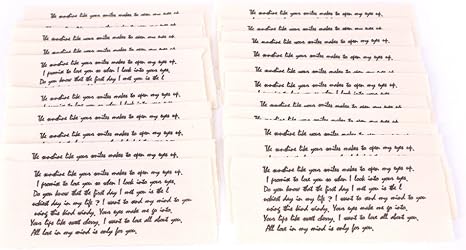 The sunshine like your smiles makes to open my eyes up,
The sunshine like your smiles makes to open my eyes up,
The sunshine like your smiles makes to open my eyes up,
The sunshine like your smiles makes to open my eyes up,
I promise to love you so when I look into your eyes,
Do you know that the first day I met you is the l
The sunshine like your smiles makes to open my eyes up,
The sunshine like your smiles makes to open my eyes up,
The sunshine like your smiles makes to open my eyes up,
The sunshine like your smiles makes to open my eyes up,
The sunshine like your smiles makes to open my eyes up,
I promise to love you so when I look into your eyes,
Do you know that the first day I met you is the l
uckiest day in my life ? I want to send my mind to you
using this kind windy, Your eyes make me go into,
Your lips like wet cherry, I want to love all about you,
All love in my mind is only for you,
The sunshine like your smiles makes to open my eyes up,
The sunshine like your smiles makes to open my eyes up,
The sunshine like your smiles makes to open my eyes up,
The sunshine like your smiles makes to open my eyes up,
The sunshine like your smiles makes to open my eyes up,
The sunshine like your smiles makes to open my eyes up,
I promise to love you so when I look into your eyes,
The sunshine like your smiles makes to open my eyes up,
The sunshine like your smiles makes to open my eyes up,
The sunshine like your smiles makes to open my eyes up,
The sunshine like your smiles makes to open my eyes up,
The sunshine like your smiles makes to open my eyes up,
The sunshine like your smiles makes to open my eyes up,
I promise to love you so when I look into your eyes,
Do you know that the first day I met you is the l
uckiest day in my life ? I want to send my mind to you
using this kind windy, Your eyes make me go into,
Your lips like wet cherry, I want to love all about you,
All love in my mind is only for you,